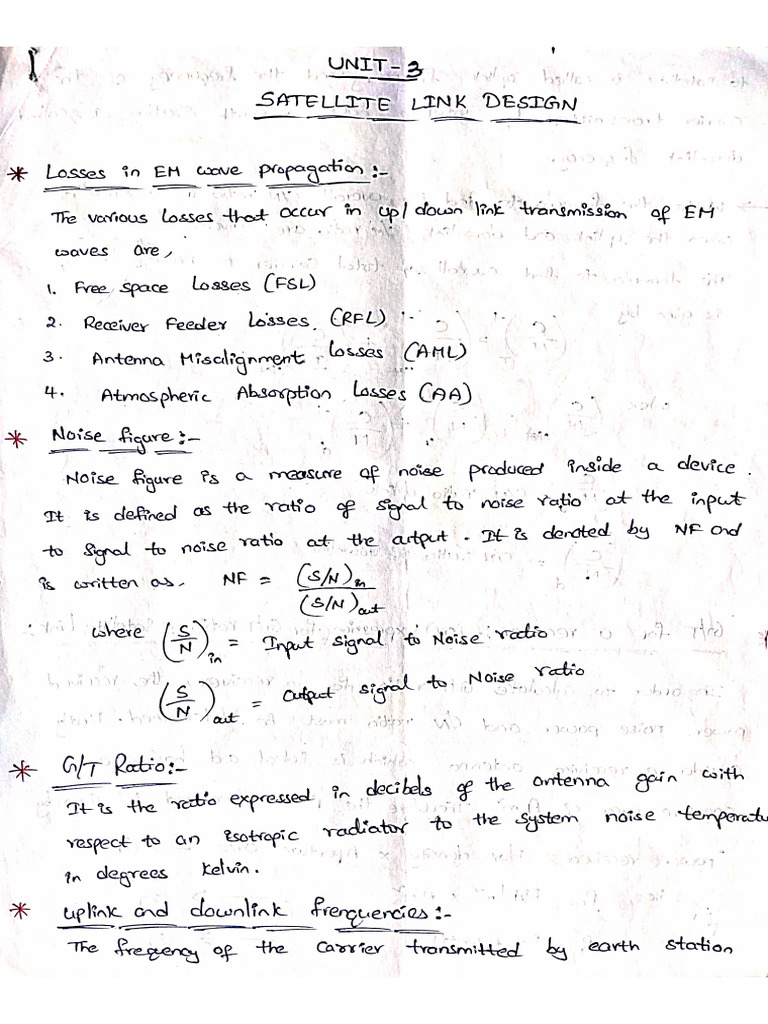 UNIT-3
SATELLITE LINK DESIGN
* Losses in EM wave propagation:-
The various Losses that occur in up/down link transmission of EM
waves are,
1. Free space Losses (FSL)
2. Receiver Feeder Losses. (RFL)
3. Antenna Misalignment Losses (AML)
4. Atmospheric Absorption Losses (AA)
* Noise figure:-
Noise figure is a measure of noise produced inside a device.
It is defined as the ratio of signal to noise ratio at the input
to signal to noise ratio at the output. It is denoted by NF and
is written as, NF = (S/N)in / (S/N)out
where (S/N)in = Input signal to Noise ratio
(S/N)out = Output signal to Noise ratio
* G/T Ratio:-
It is the ratio expressed in decibels of the antenna gain with
respect to an isotropic radiator to the system noise temperatu
in degrees kelvin.
* uplink and downlink frenquencies:-
The frequency of the carrier transmitted by earth station